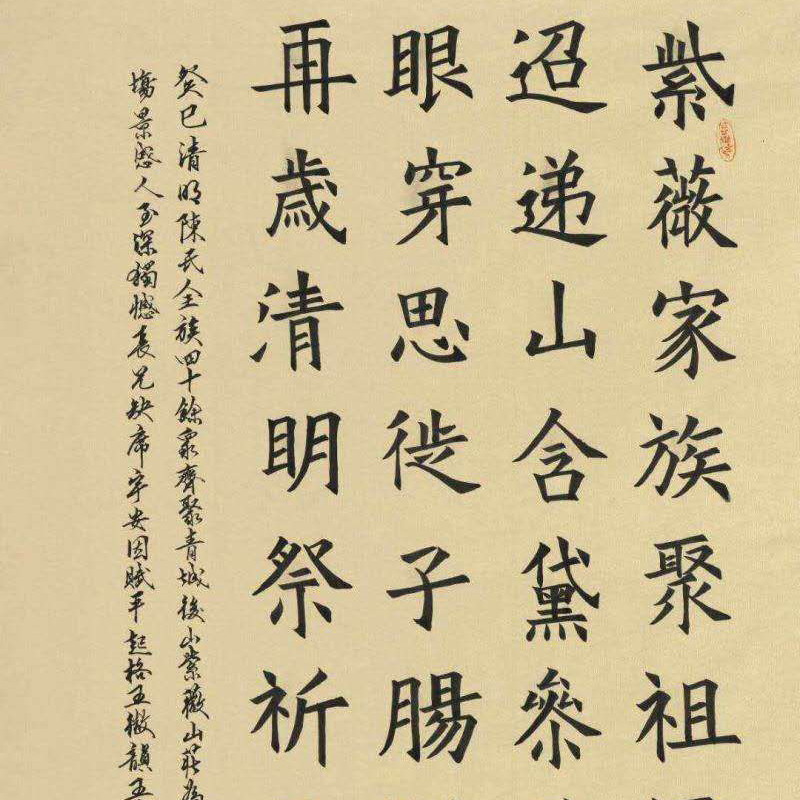 紫薇家族聚祖
迢递山含黛叅
眼穿思徙子腸
再歲清明祭祈
癸巳清明陳氏全族四十餘衆齊聚青城後山紫薇山莊為
場景感人至深獨憾長兄缺席宇安因賦平起格五微韻五